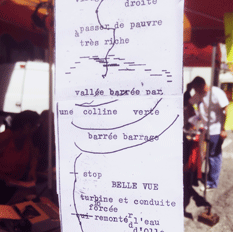 droite
à passer de pauvre
très riche
vallée barrée par
une colline verte
barrée barrage
stop
BELLE VUE
turbine et conduite
forcée
remonté l'eau